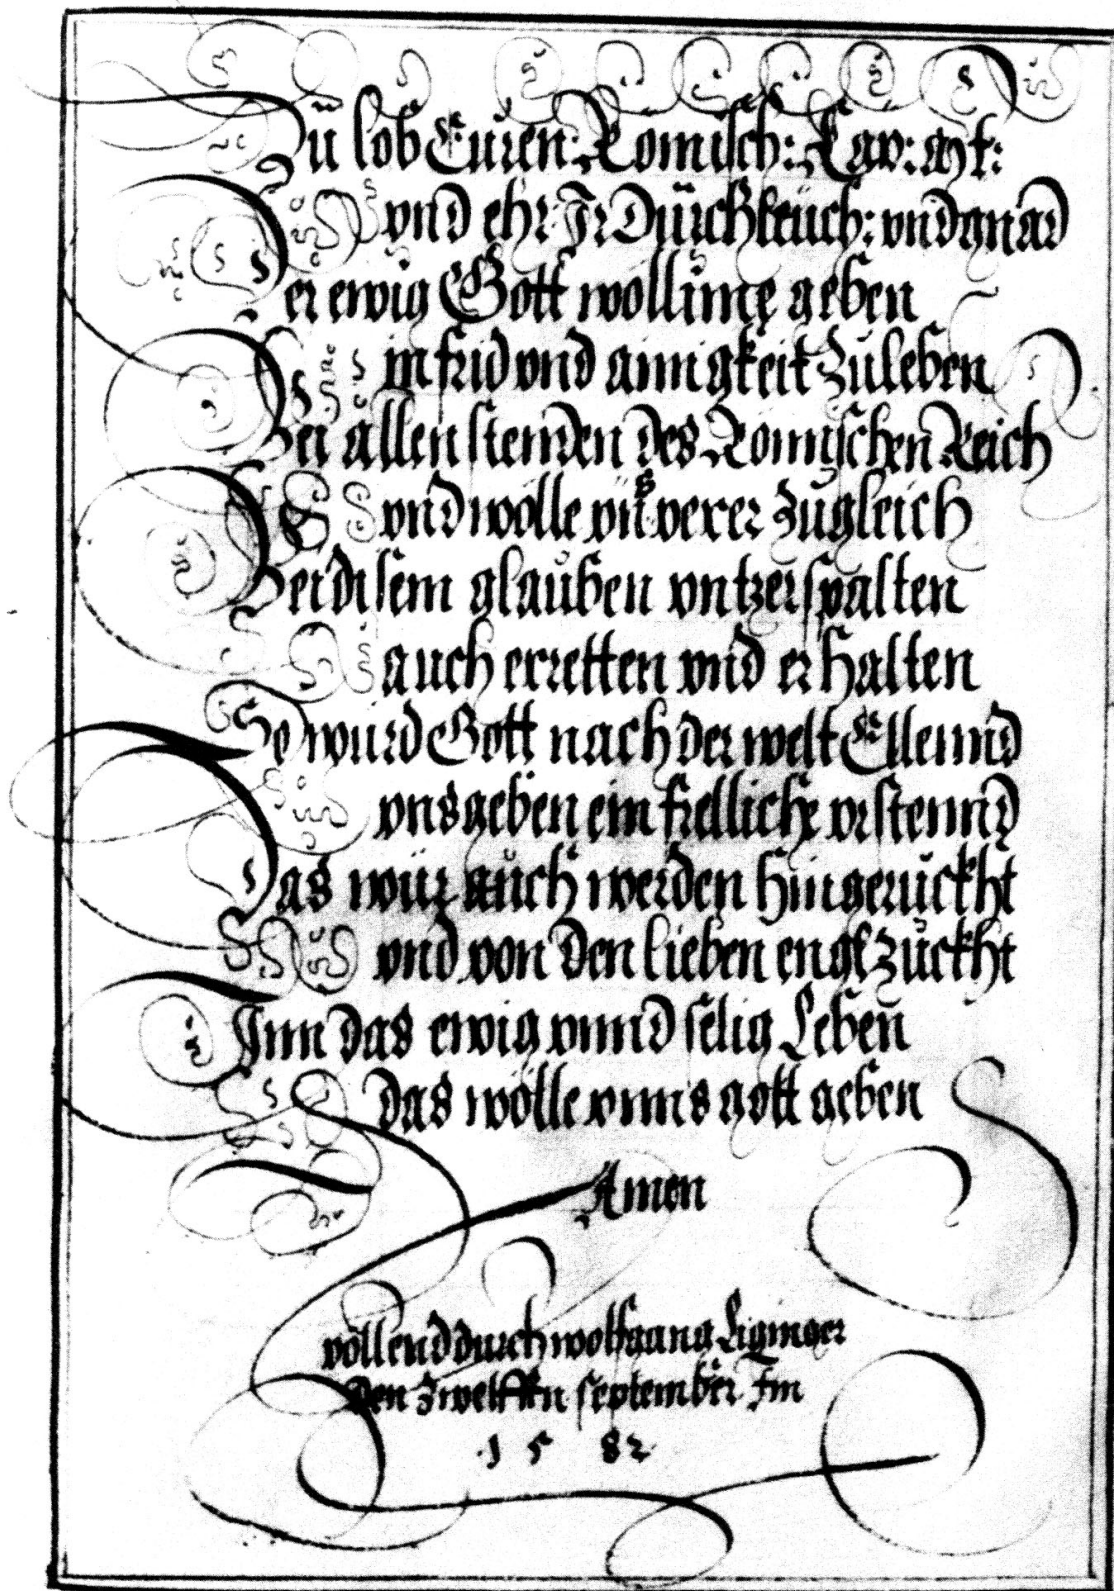 Zu lob Euren: Romisch: Kay: Mt:
vnd ehr Ir Dürchleüch: vnd gnad
Der ewig Gott wöll imę geben
in frid vnd ainigkeit zu leben
Bei allen stenden des Romischen Reich
vnd wölle vnß verer zugleich
Bei disem glauben vntzerspalten
auch erretten vnd erhalten
So würd Gott nach der welt Ellennd
vns geben ein frelliche vrstennd
Das wür auch werden hingeruckht
vnd von den lieben engl zuckht
Inn das ewig vnnd selig Leben
das wölle vnns gott geben
Amen
vollend durch wolfgang
Den zwelfften september Im
1 5 8 2